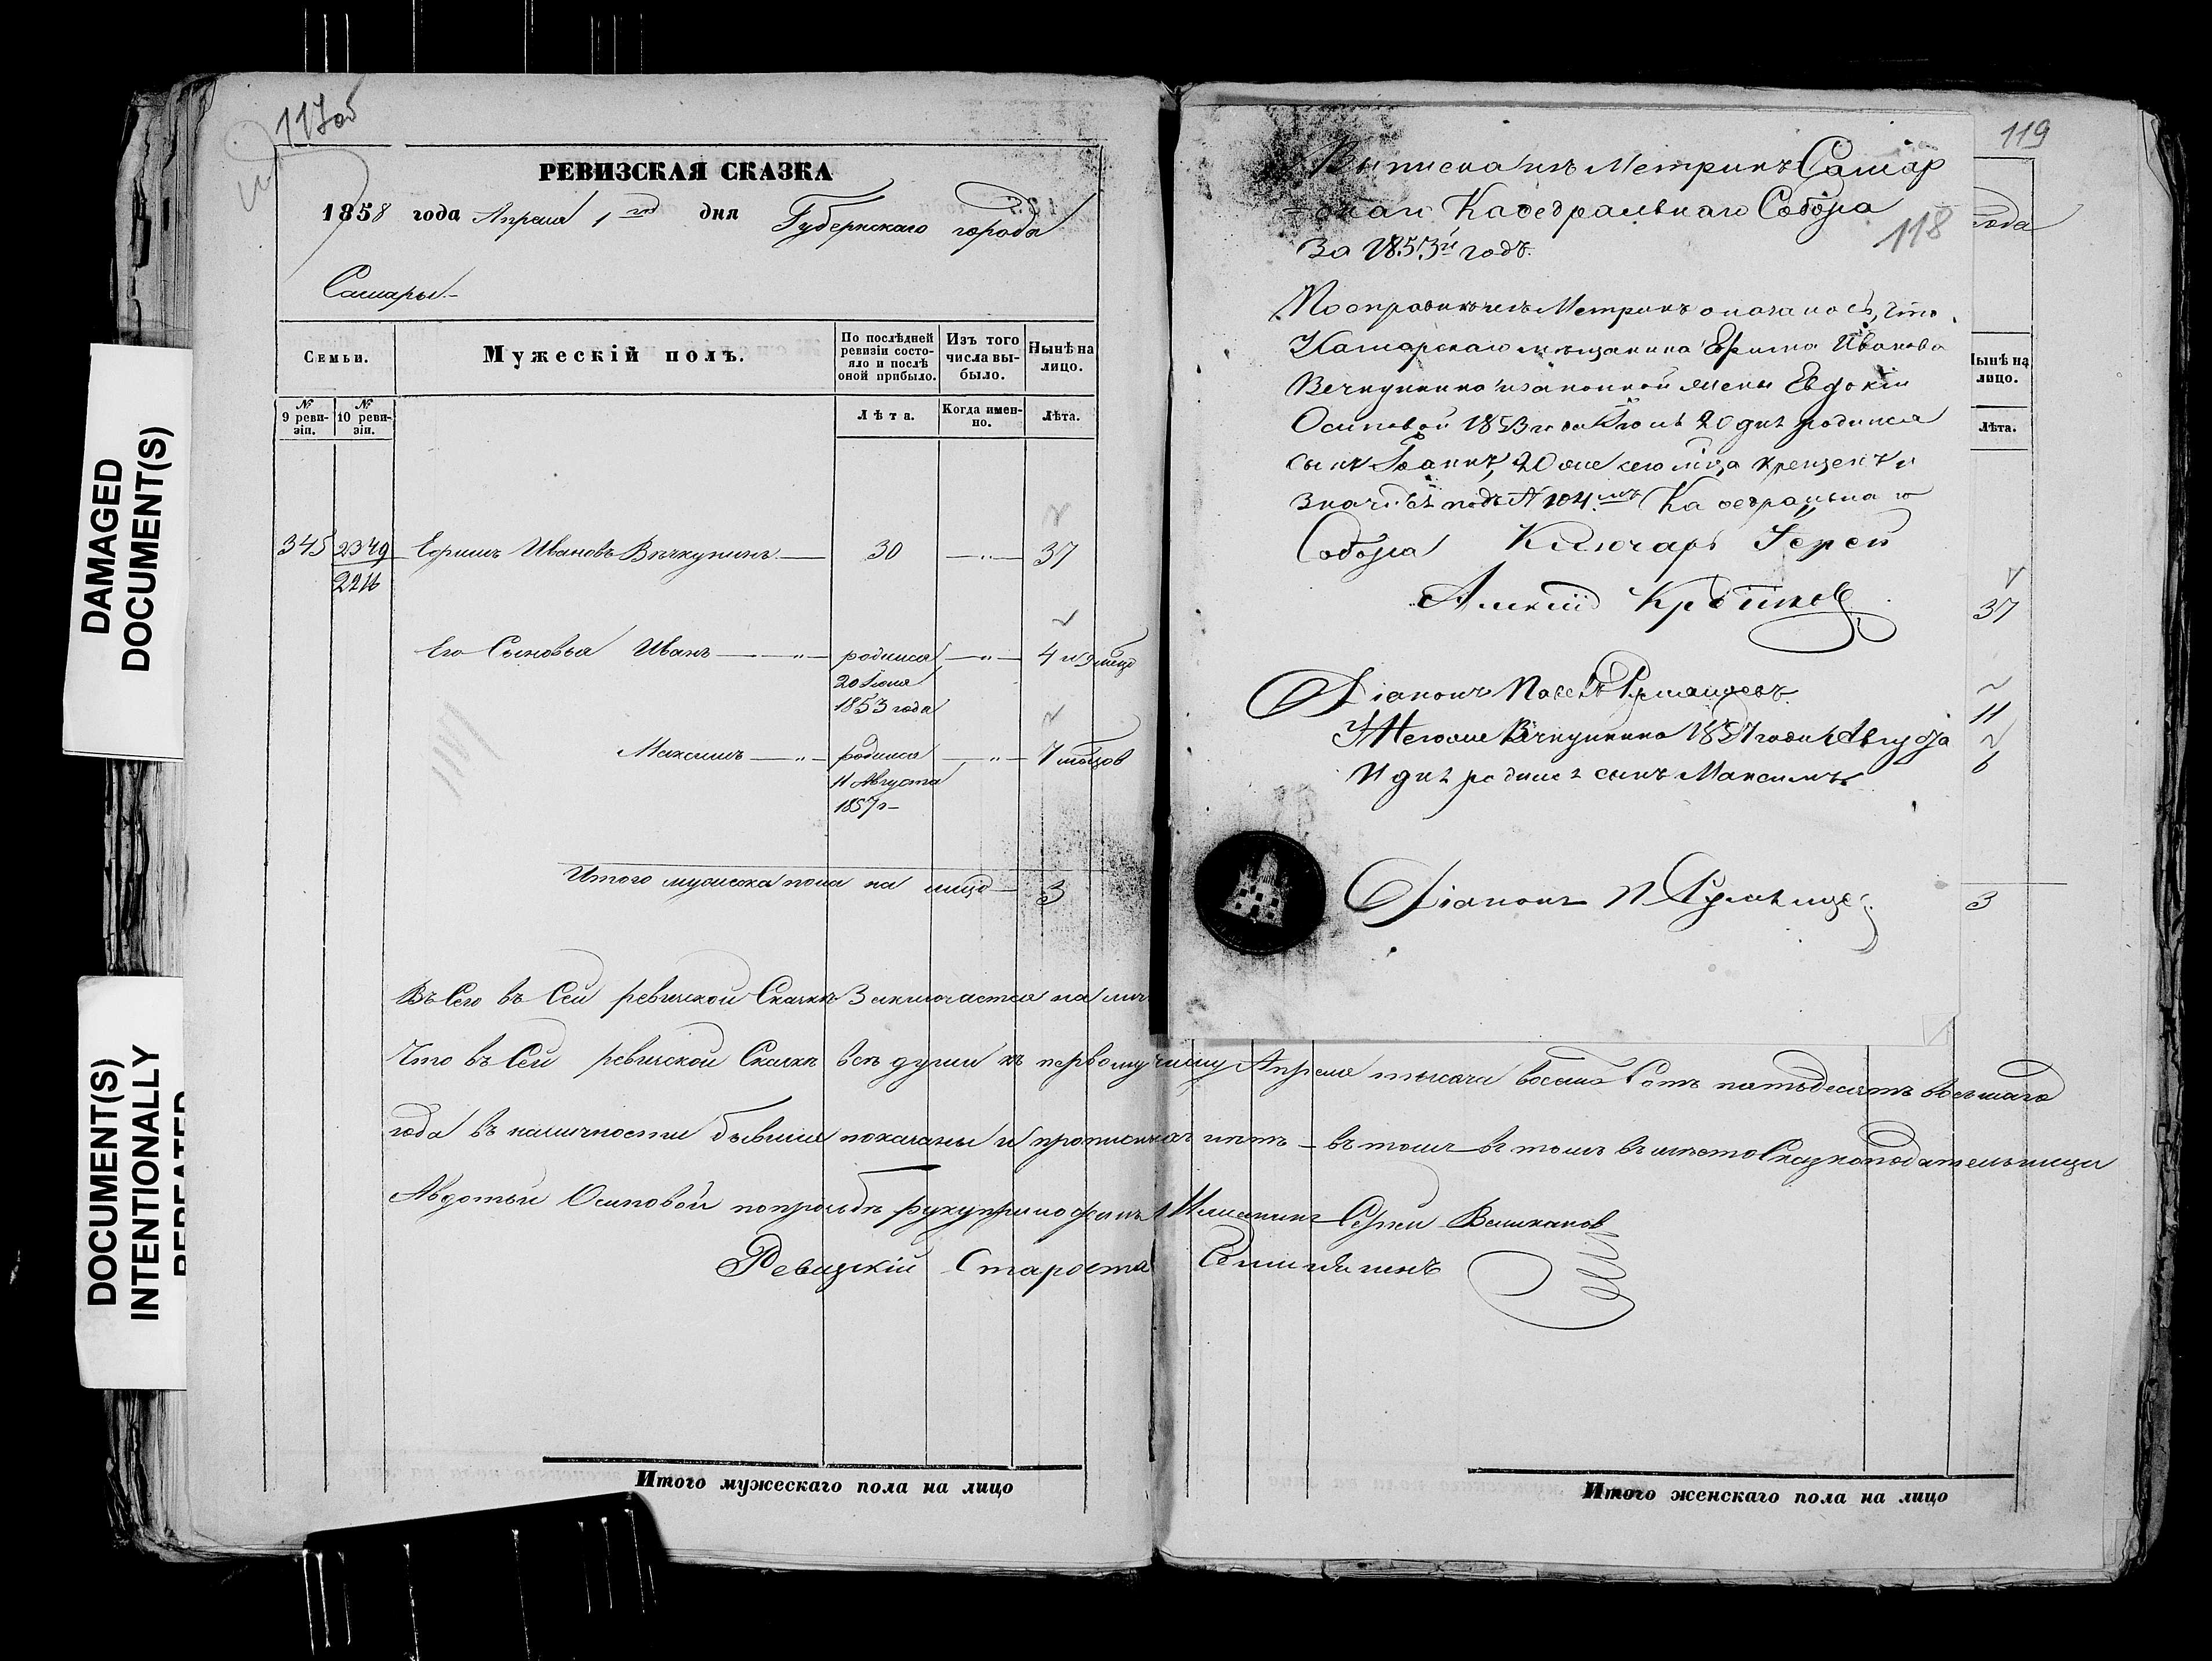 DAMAGED
DOCUMENT(S)
DOCUMENT(S)
INTENTIONALLY
REPEATED
117об
РЕВИЗСКАЯ СКАЗКА
1858 года Апреля 1го дня Губернскаго города
Самары.
Семьи.
Мужескій полъ.
По послѣдней ревизіи состояло и послѣ оной прибыло.
Изъ того числа выбыло.
Нынѣ на лицо.
№ 9 ревизіи.
№ 10 ревизіи.
Лѣта.
Когда именно.
Лѣта.
345 2349 Ефимъ Ивановъ Вѣчкунинъ 30 37
2216
Его Сыновья Иванъ родился 4 и 9 мѣцо
20 Іюня
1853 года
Максимъ родился 7 мѣсцов
11 Августа
1857 г
Итого мужеска пола на лицо 3
Въ Сего въ Сей ревизской Сказкѣ Заключается на лиц
Что въ Сей ревизской Сказкѣ всѣ души къ первому числу Апреля тысяча восемь Сотъ пятьдесятъ восьмаго
года въ наличности бывшие показаны и прописныхъ нѣтъ – въ томъ въ томъ вместо Сказкоподательницы
Авдотьи Осиповой по прозьбѣ руку приложилъ Мещанинъ Сергей Великанов
Ревизский Староста
119
118
Выписка изъ Метрикъ Самар
скаго Кафедральнаго Собора
За 1853й годъ.
По справкѣ изъ Метрикъ оказалось, что
Самарскаго мѣщанина Ефима Иванова
Вечкунина и законной жены Евдокіи
Осиповой 1853 года Іюня 20 дня родился
сынъ Іоаннъ, 20 ому сего м-ца крещенъ и
значится подъ № 104мъ Кафедральнаго
Собора Ключарь Іерей
Алексій Крѣпков
Діаконъ Румянцевъ
У Него же Вечкунина 1857 года Августа
11 дня родился сынъ Максимъ
Діаконъ П Румянцев
года
Нынѣ на
лицо.
Лѣта.
37
11
6
3
Итого мужескаго пола на лицо
Итого женскаго пола на лицо